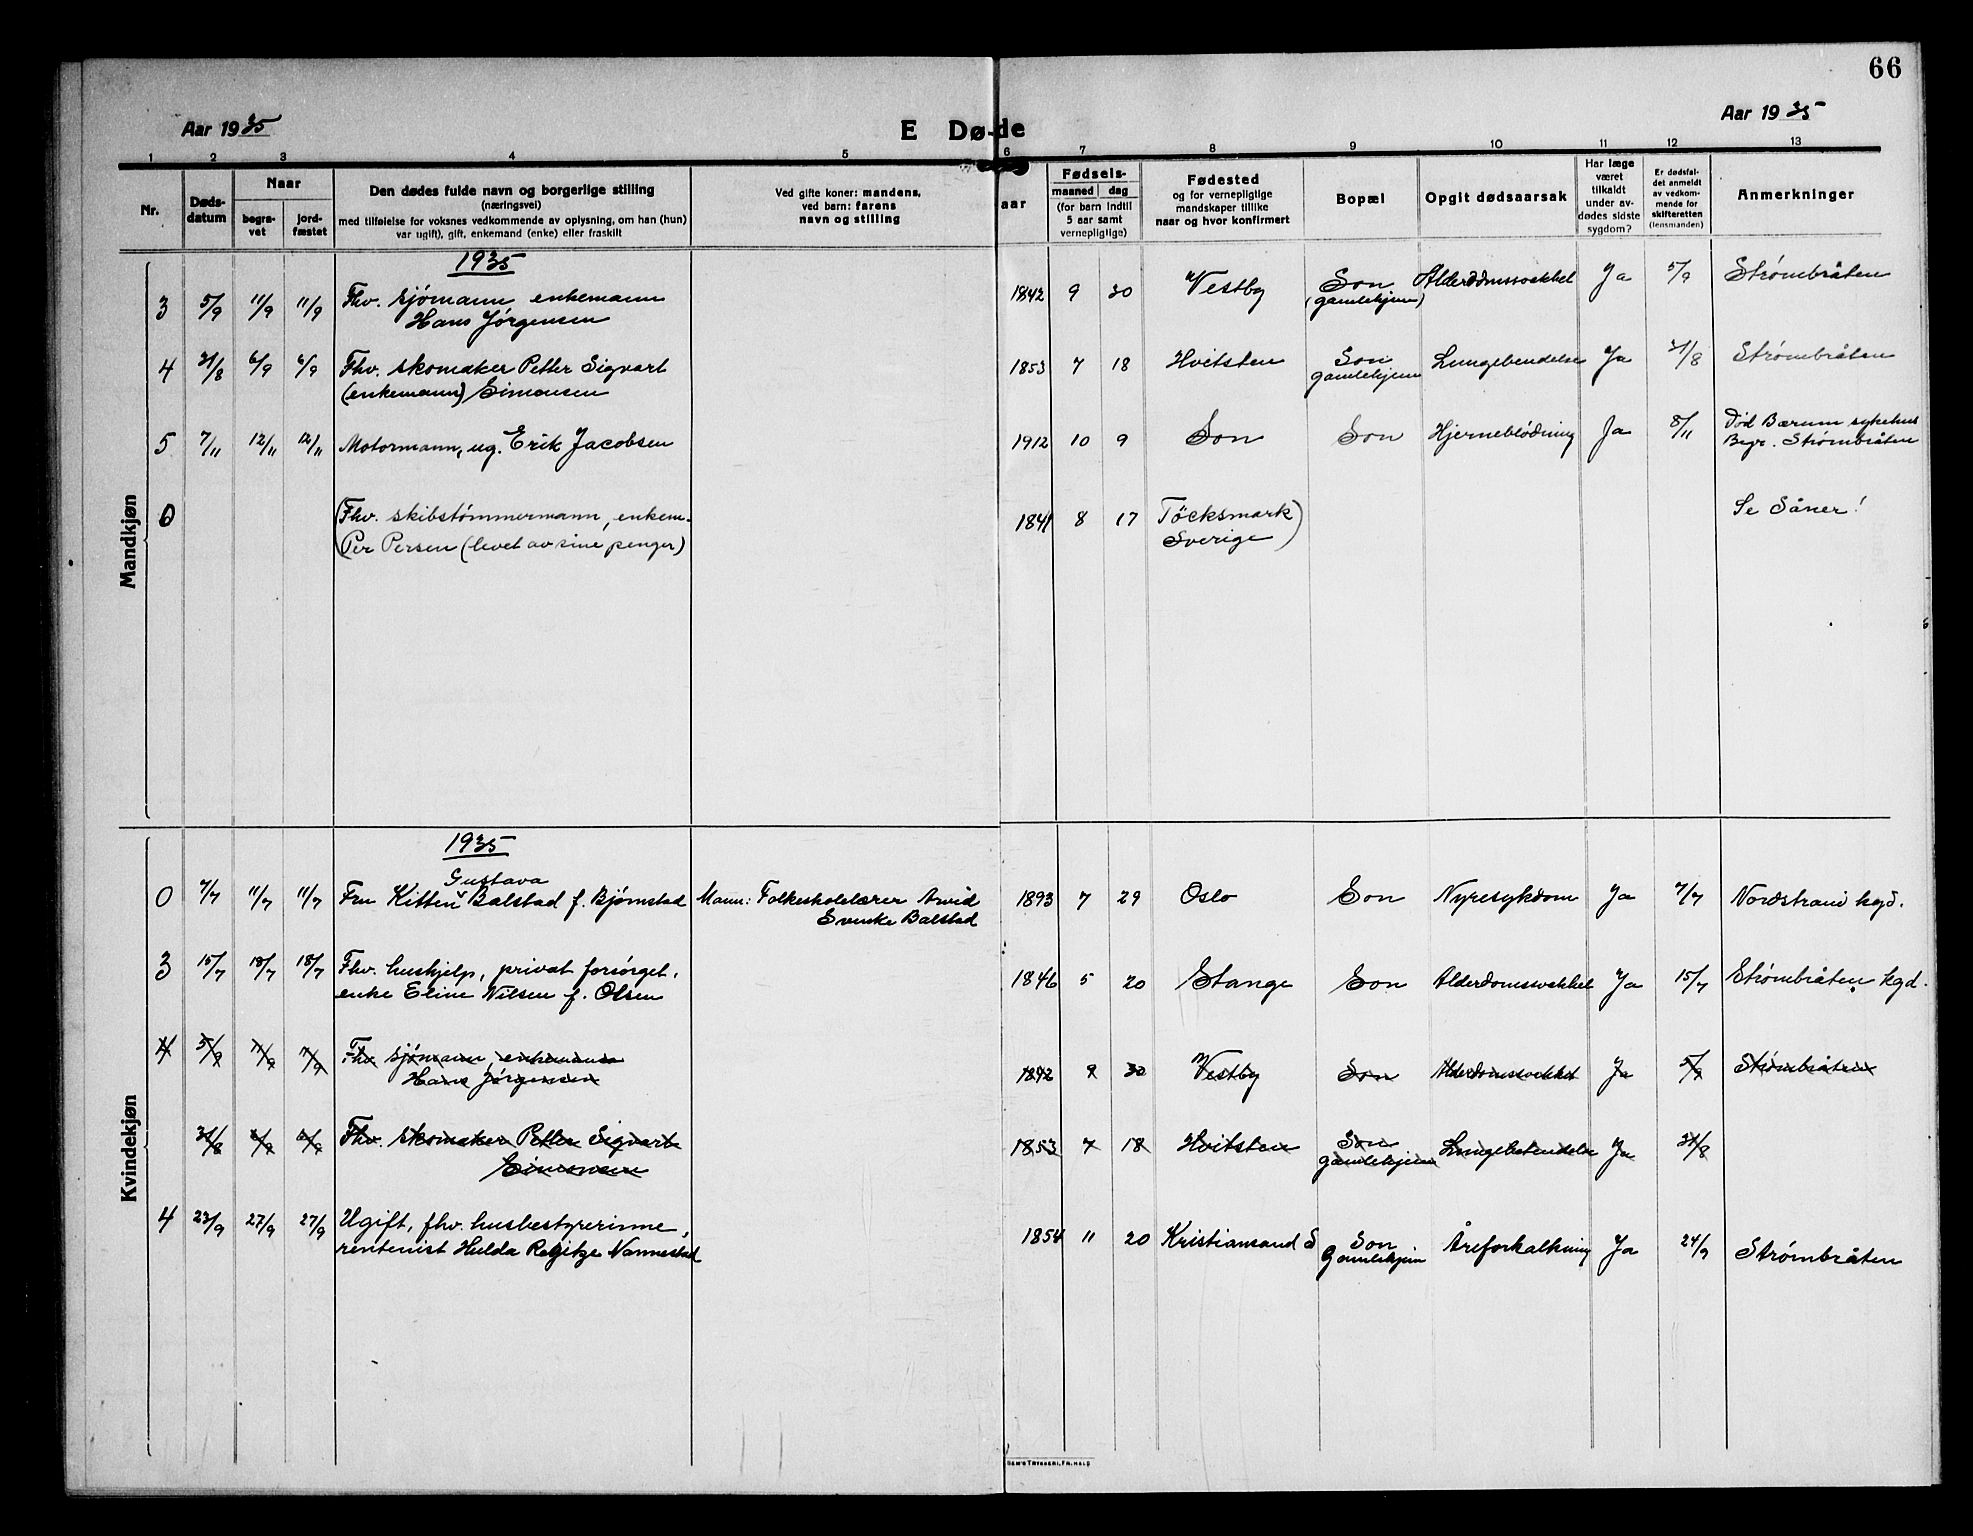 66
Aar 1935
E Døde
Aar 1935
1 2 3 4 5 6 7 8 9 10 11 12 13
Nr.
Døds-
datum
Naar
begra-
vet
jord-
fæstet
Den dødes fulde navn og borgerlige stilling
(næringsvei)
med tilføielse for voksnes vedkommende av oplysning, om han (hun)
var ugift), gift, enkemand (enke) eller fraskilt
Ved gifte koner: mandens,
ved barn: farens
navn og stilling
aar
Fødsels-
maaned dag
(for barn indtil
5 aar samt
vernepligtige)
Fødested
og for vernepligtige
mandskaper tillike
naar og hvor konfirmert
Bopæl
Opgit dødsaarsak
Har læge
været
tilkaldt
under av-
dødes sidste
sygdom?
Er dødsfal-
det anmeldt
av vedkom-
mende for
skifteretten
(lensmanden)
Anmerkninger
Mandkjøn
1935
3 5/9 11/9 11/9 Fhv. sjømann enkemann 1842 9 30 Vestby Son Alderdomssvekkel Ja 5/9 Strømbråten
Hans Jørgensen (gamlehjem)
4 31/8 6/9 6/9 Fhv. skomaker Petter Sigvart 1853 7 18 Hvitsten Son Lungebendelse Ja 31/8 Strømbråten
(enkemann) Simonsen gamlehjem
5 7/11 12/11 12/11 Motormann, ug. Erik Jacobsen 1912 10 9 Son Son Hjerneblødning Ja 8/11 Død Bærum sykehus
Begr. Strømbråten
0 (Fhv. skibstømmermann, enkem. 1841 8 17 Töcksmark) Se Såner!
(Per Persen (levet av sine penger) Sverige)
Kvindekjøn
1935
Gustava
0 7/7 11/7 11/7 Fru Kitten Balstad f. Bjørnstad Mann: Folkeskolelærer Arvid 1893 7 29 Oslo Son Nyresykdom Ja 7/7 Nordstrand kgd.
Svenke Balstad
3 15/7 18/7 18/7 Fhv. hushjelp, privat forsørget, 1846 5 20 Stange Son Alderdomssvekkel Ja 15/7 Strømbråten kgd.
enke Eline Nilsen f. Olsen
4 5/9 11/9 11/9 Fhv sjømann, enkemann 1842 9 30 Vestby Son Alderdomssvekkel Ja 5/9 Strømbråten
Hans Jørgensen
31/8 6/9 6/9 Fhv. skomaker Petter Sigvart 1853 7 18 Hvitsten Son Lungebetendelse Ja 31/8
Simonsen gamlehjem
4 23/9 27/9 27/9 Ugift, fhv. husbestyrerinne, 1854 11 20 Kristiansand S Son Åreforkalkning Ja 24/9 Strømbråten
rentenist Hulda Regitze Nannestad Gamlehjem
SEM'S TRYKKERI, FR.HALD